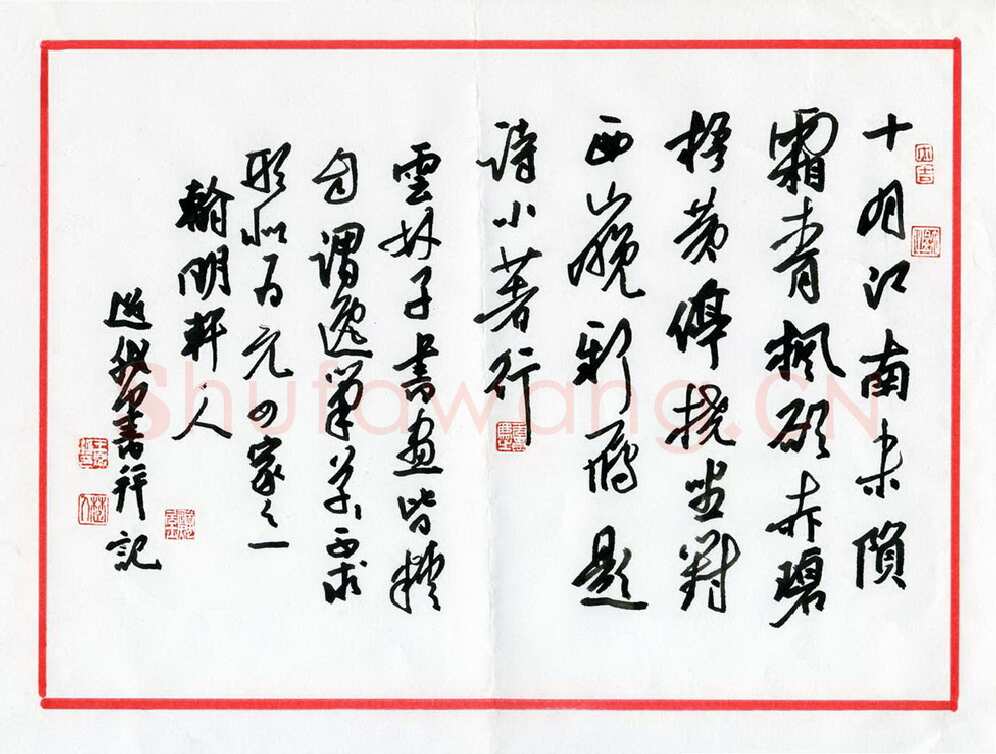 十月江南未隕
霜青楓欲赤碧
梧黄停橈坐對
西山晚新雁題
詩小著行
雲林子書畫皆
自謂逸筆草草不求
形似為元四家之一
翰明軒人
書并記
Shufawang.CN